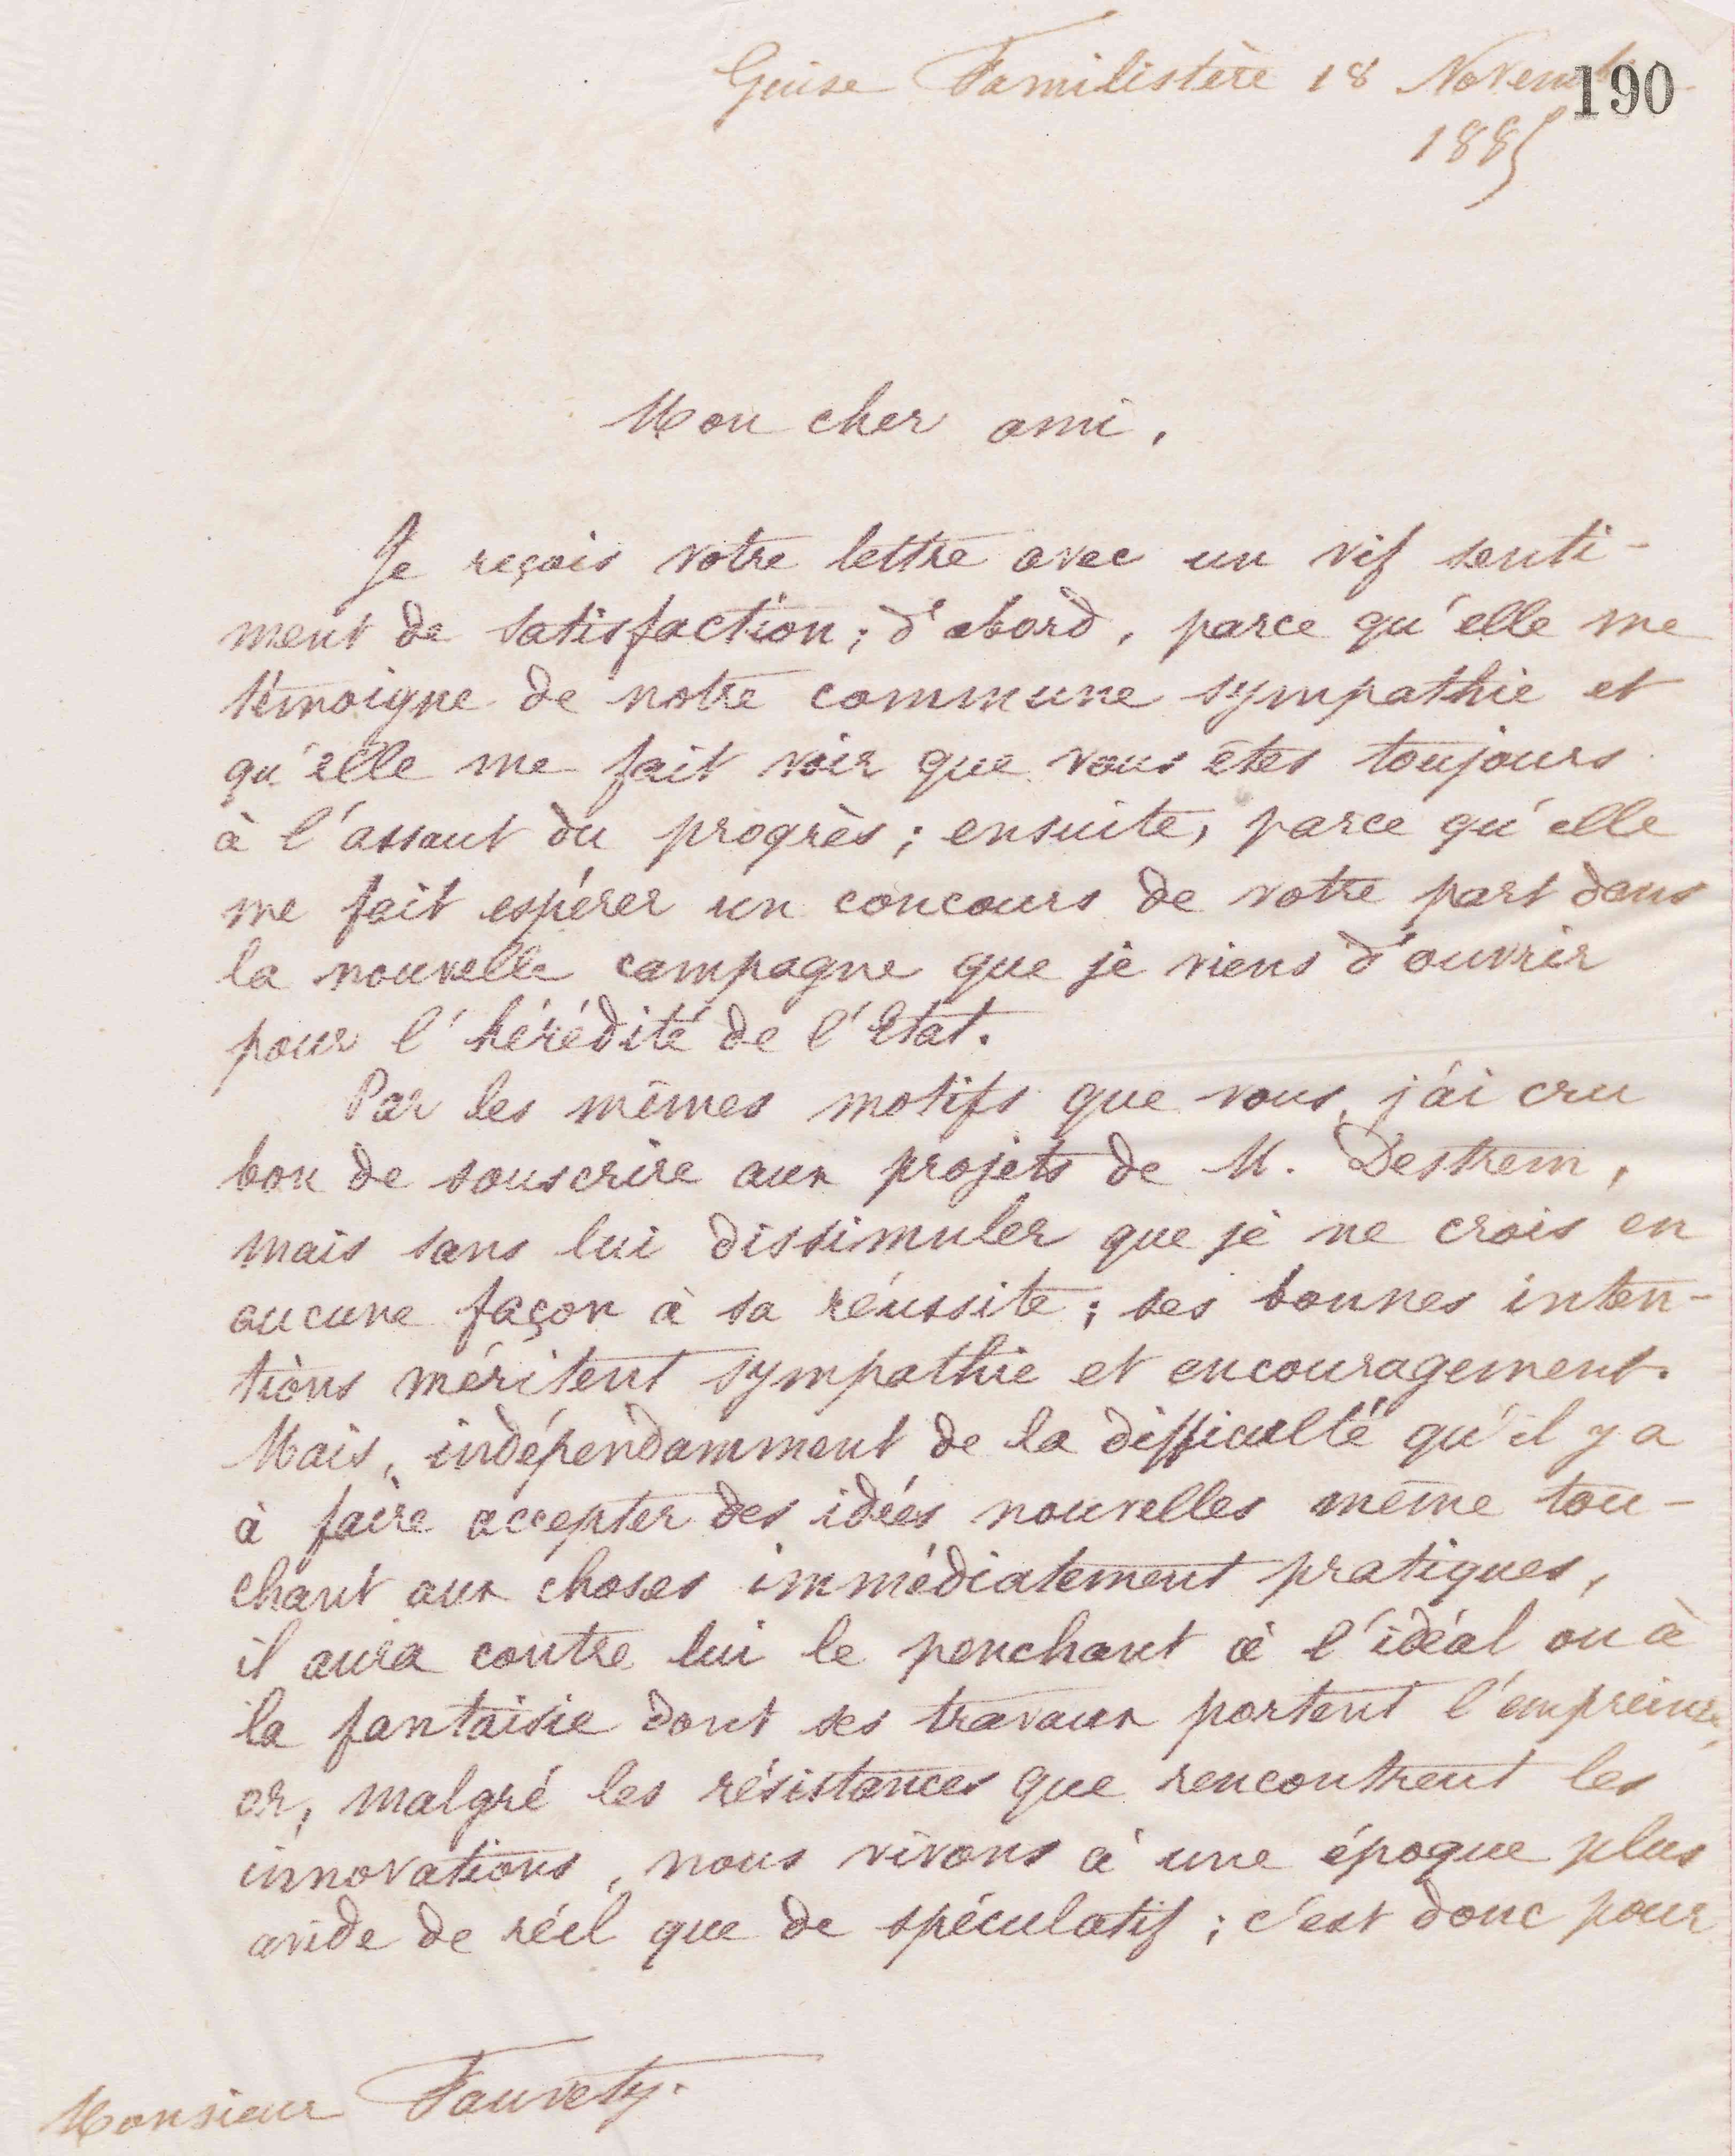 Guise Familistère 18 Novembre
190
1885
Mon cher ami,
Je reçois votre lettre avec un vif senti-
ment de satisfaction ; d'abord, parce qu'elle me
témoigne de notre commune sympathie et
qu'elle me fait voir que vous êtes toujours
à l'assaut du progrès ; ensuite, parce qu'elle
me fait espérer un concours de votre part dans
la nouvelle campagne que je viens d'ouvrir
pour l'hérédité de l'Etat.
Par les mêmes motifs que vous, j'ai cru
bon de souscrire aux projets de M. Destrem,
mais sans lui dissimuler que je ne crois en
aucune façon à sa réussite ; ses bonnes inten-
tions méritent sympathie et encouragement.
Mais, indépendamment de la difficulté qu'il y a
à faire accepter des idées nouvelles même tou-
chant aux choses immédiatement pratiques,
il aura contre lui le penchant à l'idéal ou à
la fantaisie dont ses travaux portent l'empreinte,
or, malgré les résistances que rencontrent les
innovations, nous vivons à une époque plus
avide de réel que de spéculatif ; c'est donc pour
Monsieur Fauvety.